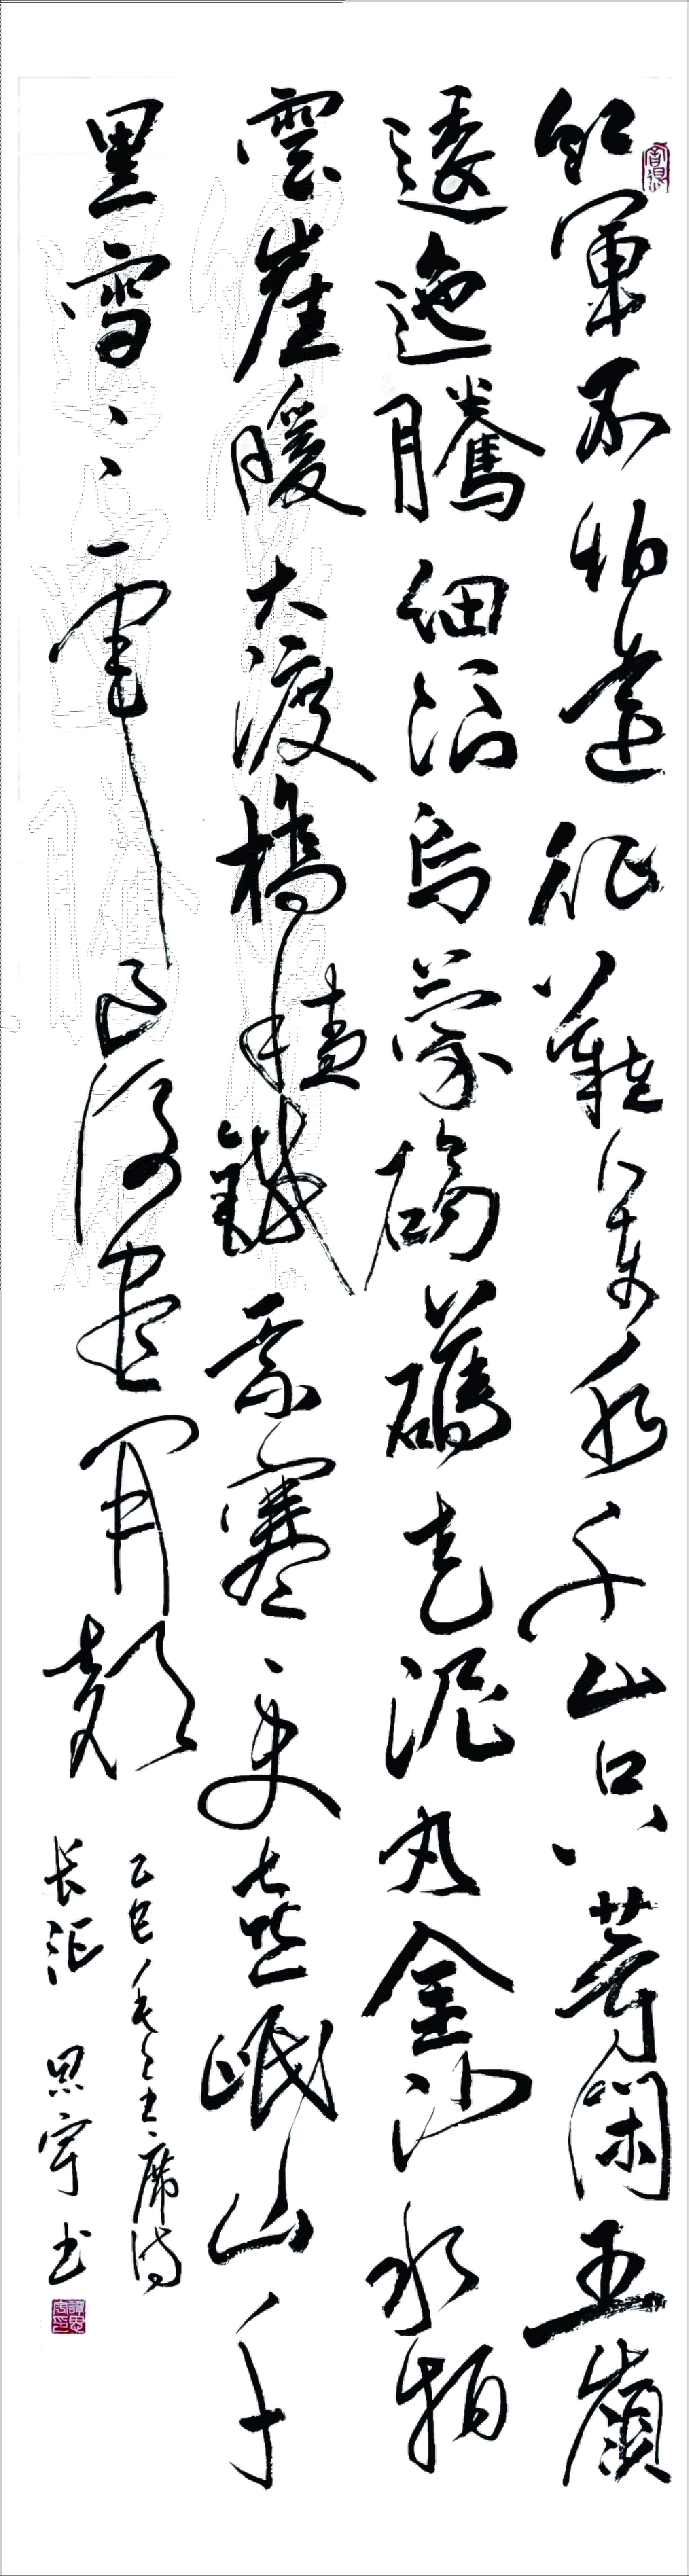 紅軍不怕遠征難萬水千山只等閑五嶺
逶迤騰細浪烏蒙磅礴走泥丸金沙水拍
雲崖暖大渡橋橫鐵索寒更喜岷山千
里雪三軍過後盡開顏
乙巳毛主席诗
长征 思宇书